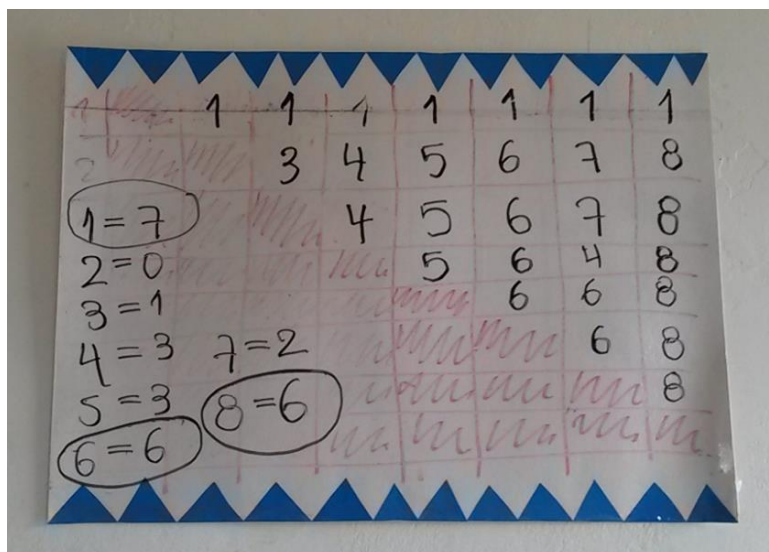 1 1 1 1 1 1 1 1
2 3 4 5 6 7 8
4 5 6 7 8
5 6 4 8
6 6 8
6 8
8
1=7
2=0
3=1
4=3
5=3
6=6
7=2
8=6